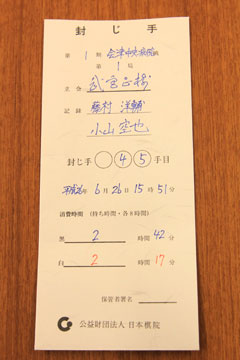 封じ手
第 1 期 会津中央病院杯
第 1 局
立会 武宮正樹
記録 藤村洋輔
小山空也
封じ手 ○④⑤手目
平成26年 6月 26日 15時 51分
消費時間 (持ち時間・各8時間)
黒 2 時間 42分
白 2 時間 17分
保管者署名
公益財団法人 日本棋院